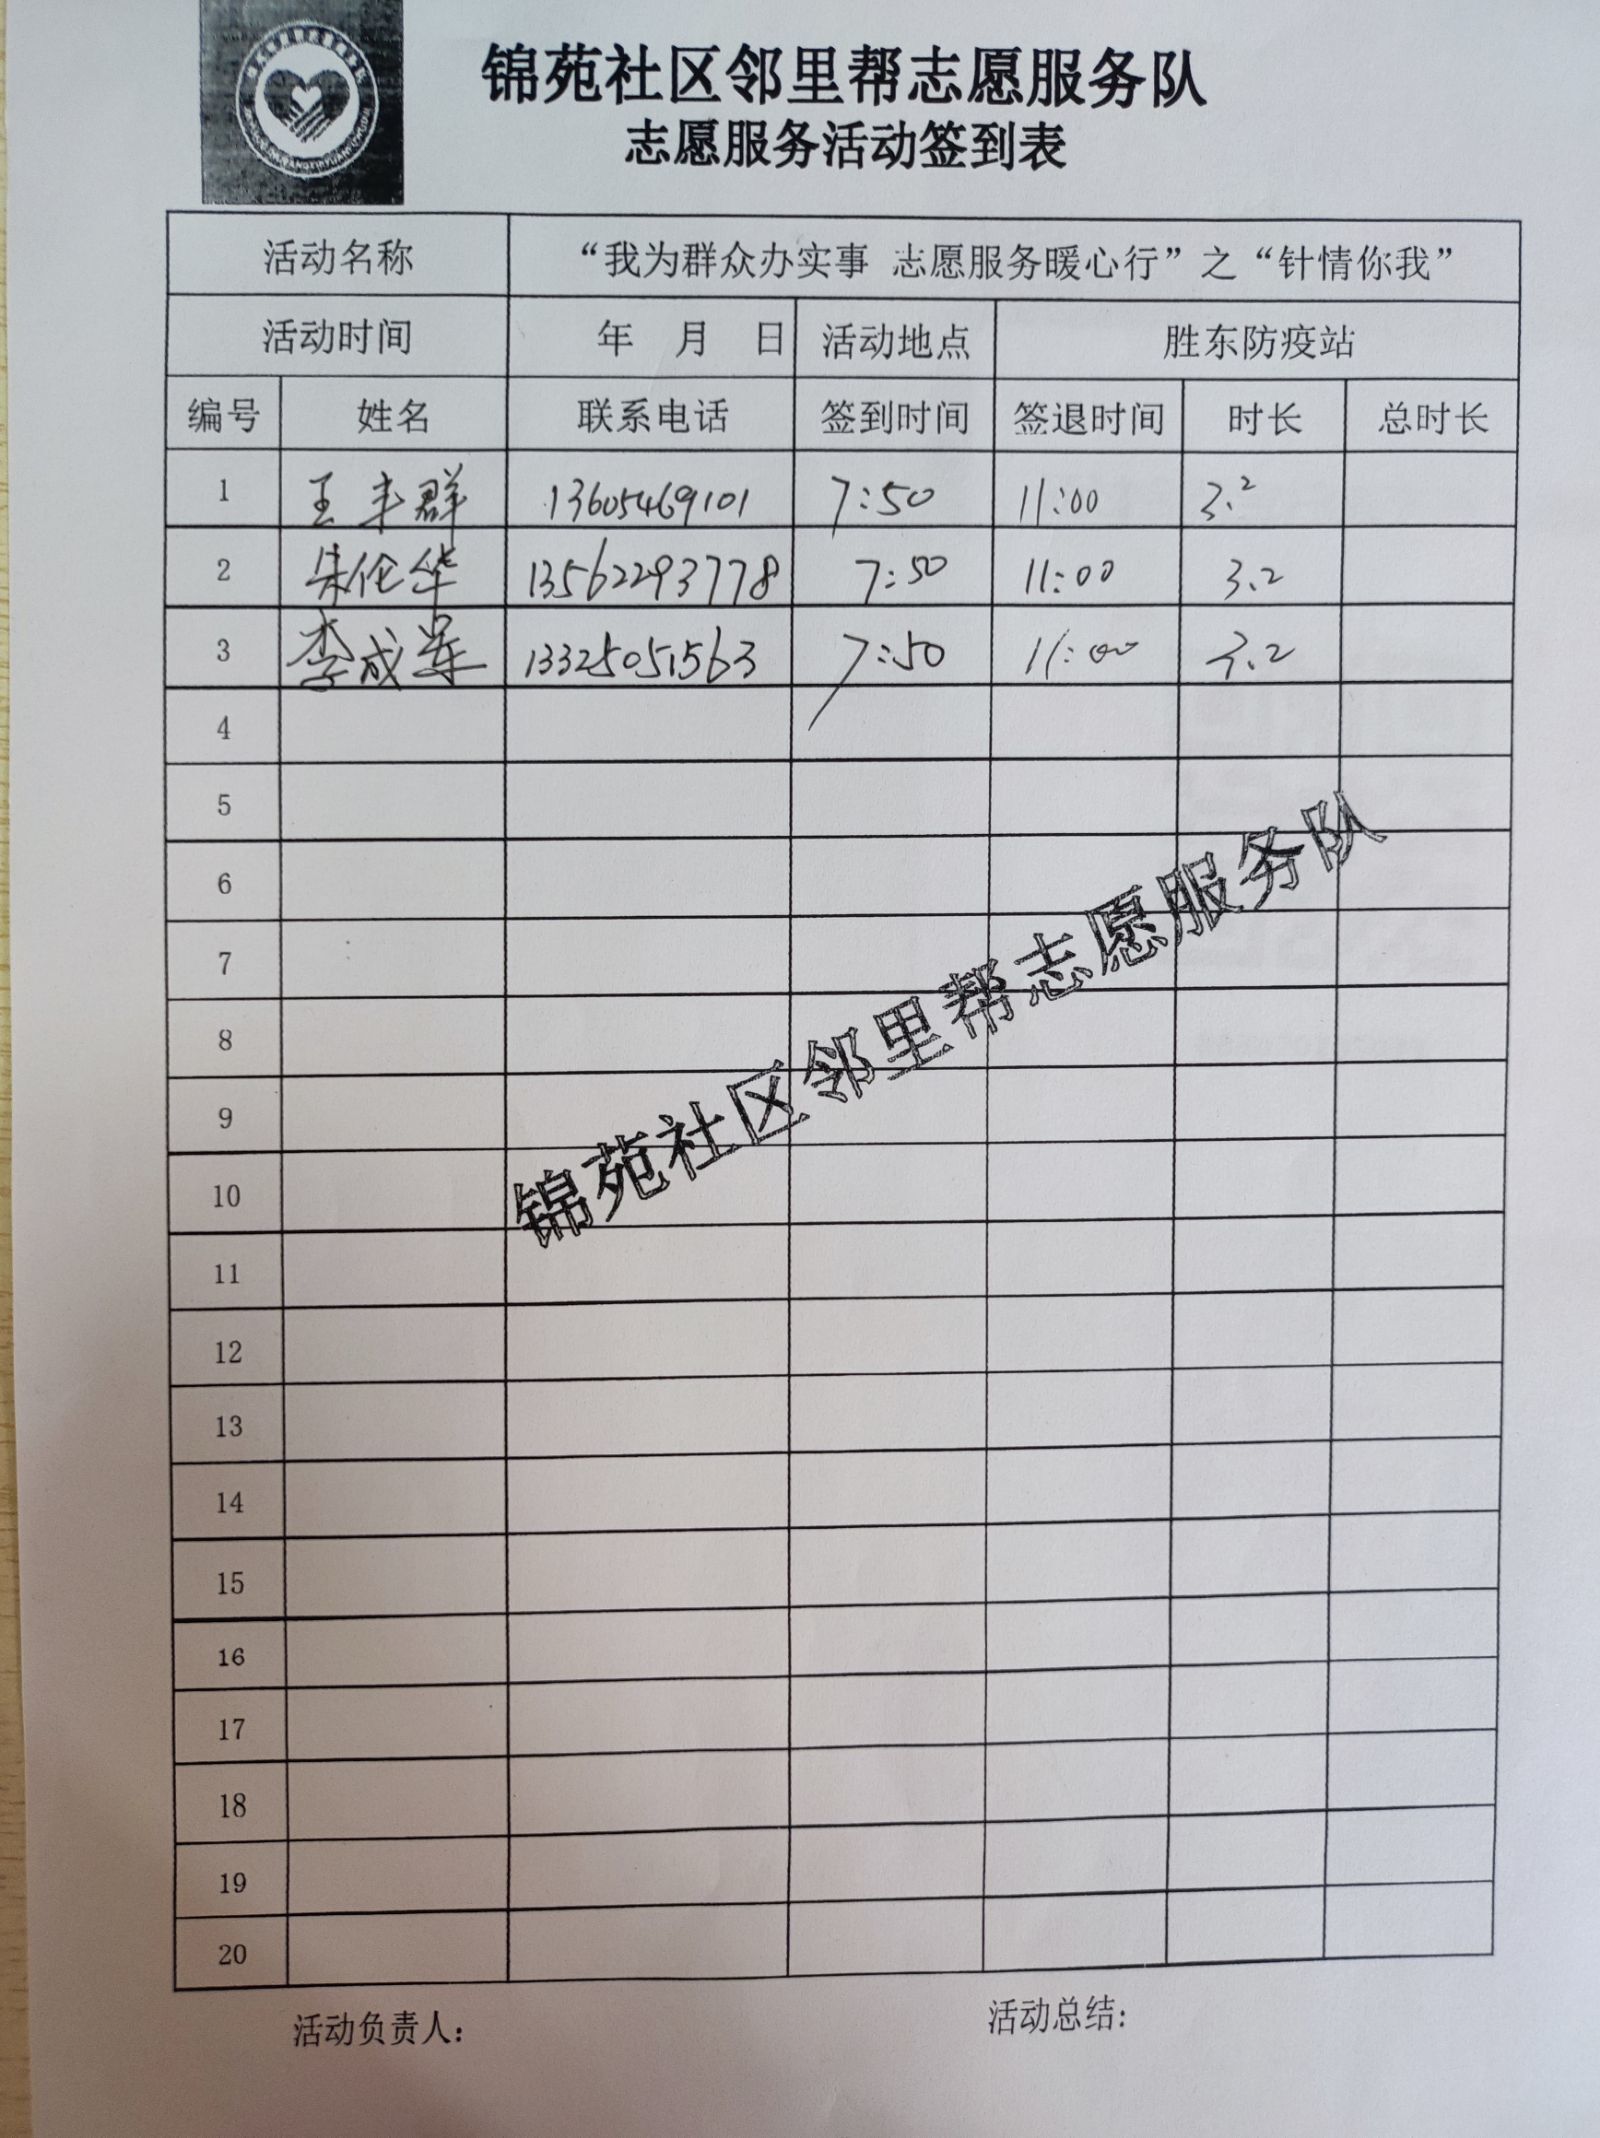 锦苑社区邻里帮志愿服务队
志愿服务活动签到表
活动名称 “我为群众办实事 志愿服务暖心行”之“针情你我”
活动时间 年 月 日 活动地点 胜东防疫站
编号 姓名 联系电话 签到时间 签退时间 时长 总时长
1 王丰群 13605469101 7:50 11:00 3.2
2 朱伦华 13562293778 7:50 11:00 3.2
3 李成军 13325051563 7:50 11:00 3.2
4
5
6
7
8
9
10
11
12
13
14
15
16
17
18
19
20
锦苑社区邻里帮志愿服务队
活动负责人: 活动总结: